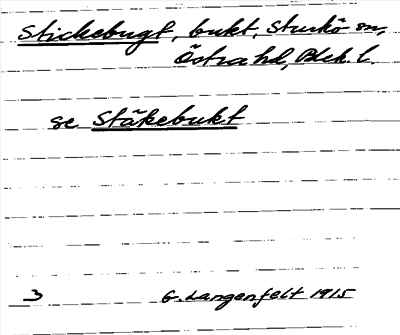 Stickebugt, bukt, Sturkö sn,
Östra hd, Blek. l.
se Stäkebukt
3 G. Langenfelt 1915